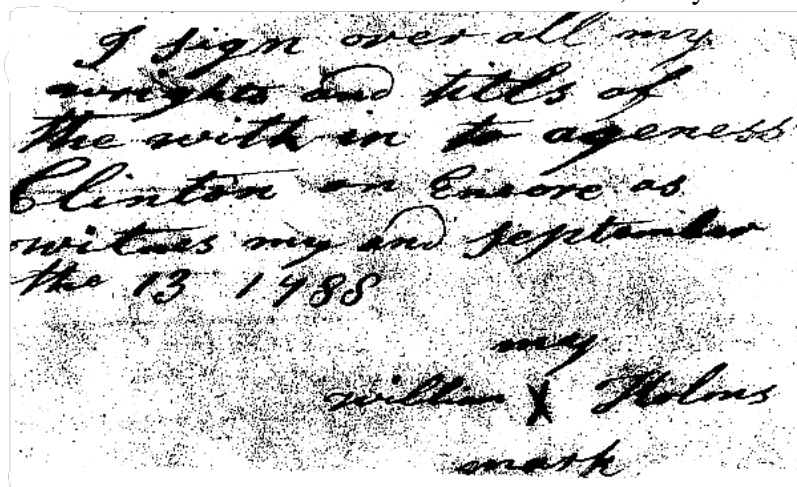 I sign over all my
wrights and titls of
the with in to ageness
Clinton on Ensore as
witnes my and september
the 13 1788
my
william X Holms
mark